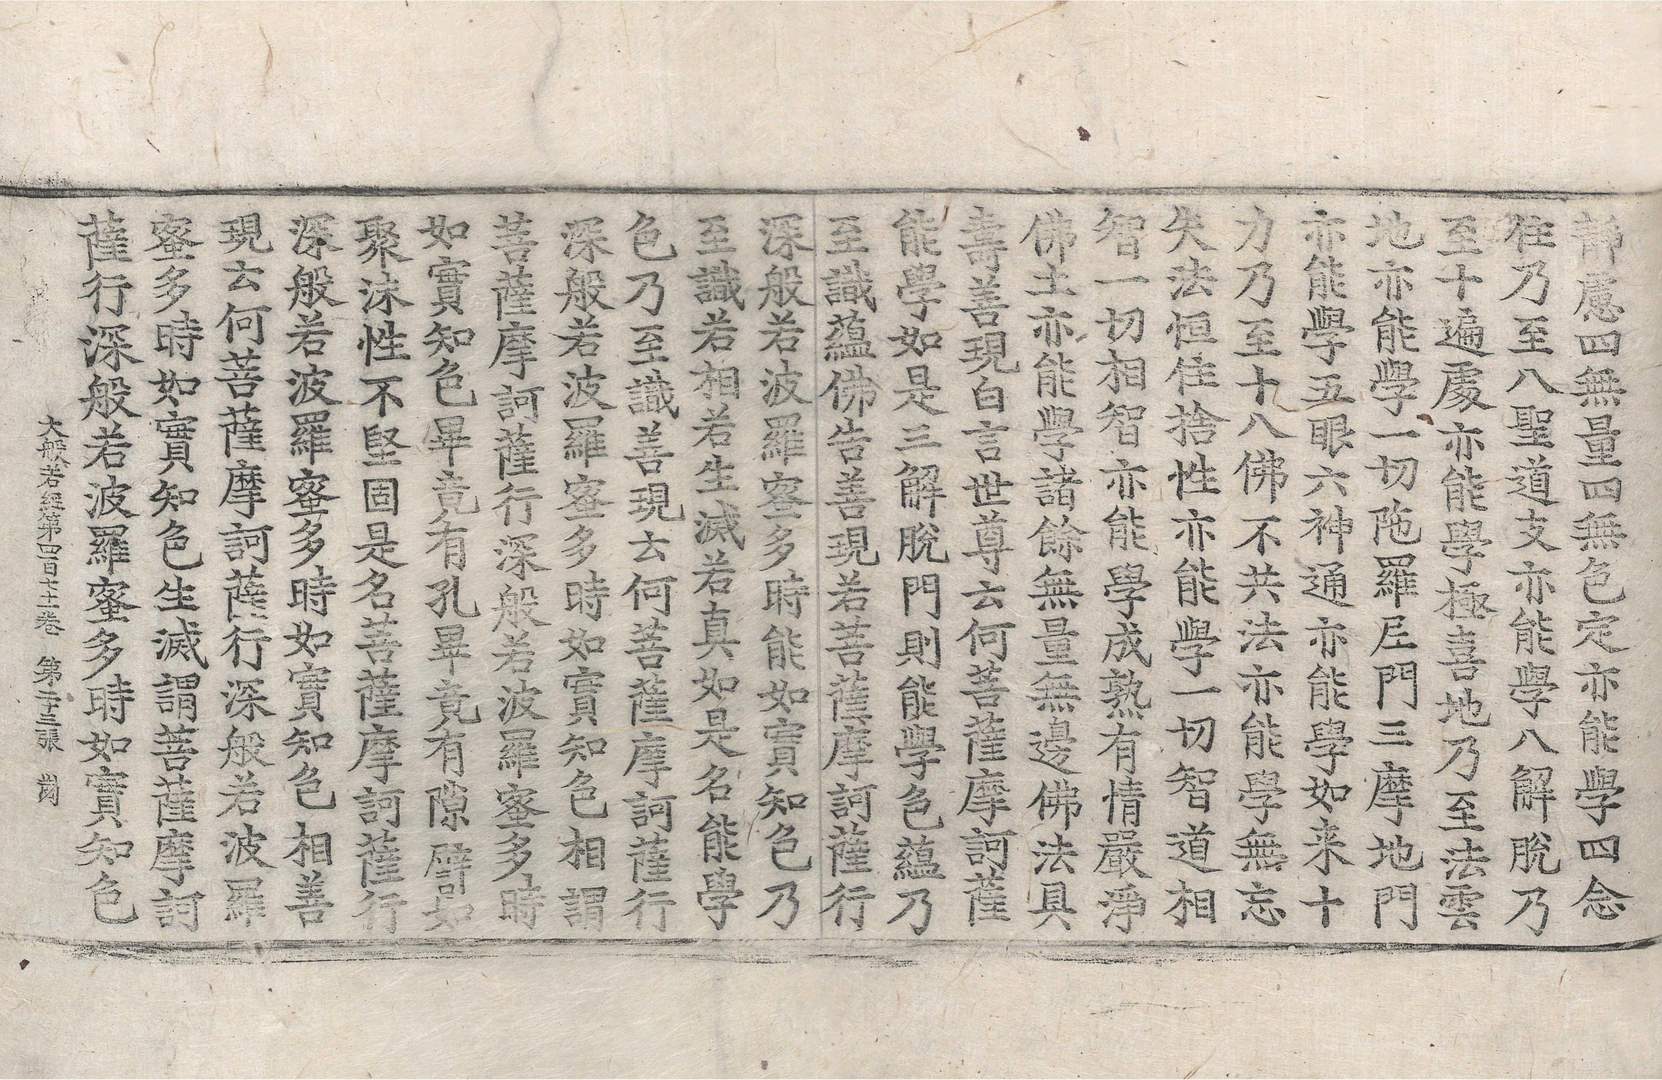 靜慮四無量四無色定亦能學四念
住乃至八聖道支亦能學八解脫乃
至十遍處亦能學極喜地乃至法雲
地亦能學一切陁羅尼門三摩地門
亦能學五眼六神通亦能學如来十
力乃至十八佛不共法亦能學無忘
失法恒住捨性亦能學一切智道相
智一切相智亦能學成熟有情嚴淨
佛土亦能學諸餘無量無邊佛法具
壽善現白言世尊云何菩薩摩訶薩
能學如是三解脫門則能學色蘊乃
至識蘊佛告善現若菩薩摩訶薩行
深般若波羅蜜多時能如實知色乃
至識若相若生滅若真如是名能學
色乃至識善現云何菩薩摩訶薩行
深般若波羅蜜多時如實知色相謂
菩薩摩訶薩行深般若波羅蜜多時
如實知色畢竟有孔畢竟有隙譬如
聚沫性不堅固是名菩薩摩訶薩行
深般若波羅蜜多時如實知色相善
現云何菩薩摩訶薩行深般若波羅
蜜多時如實知色生滅謂菩薩摩訶
薩行深般若波羅蜜多時如實知色
大般若經第四百七十一卷 第二十三張